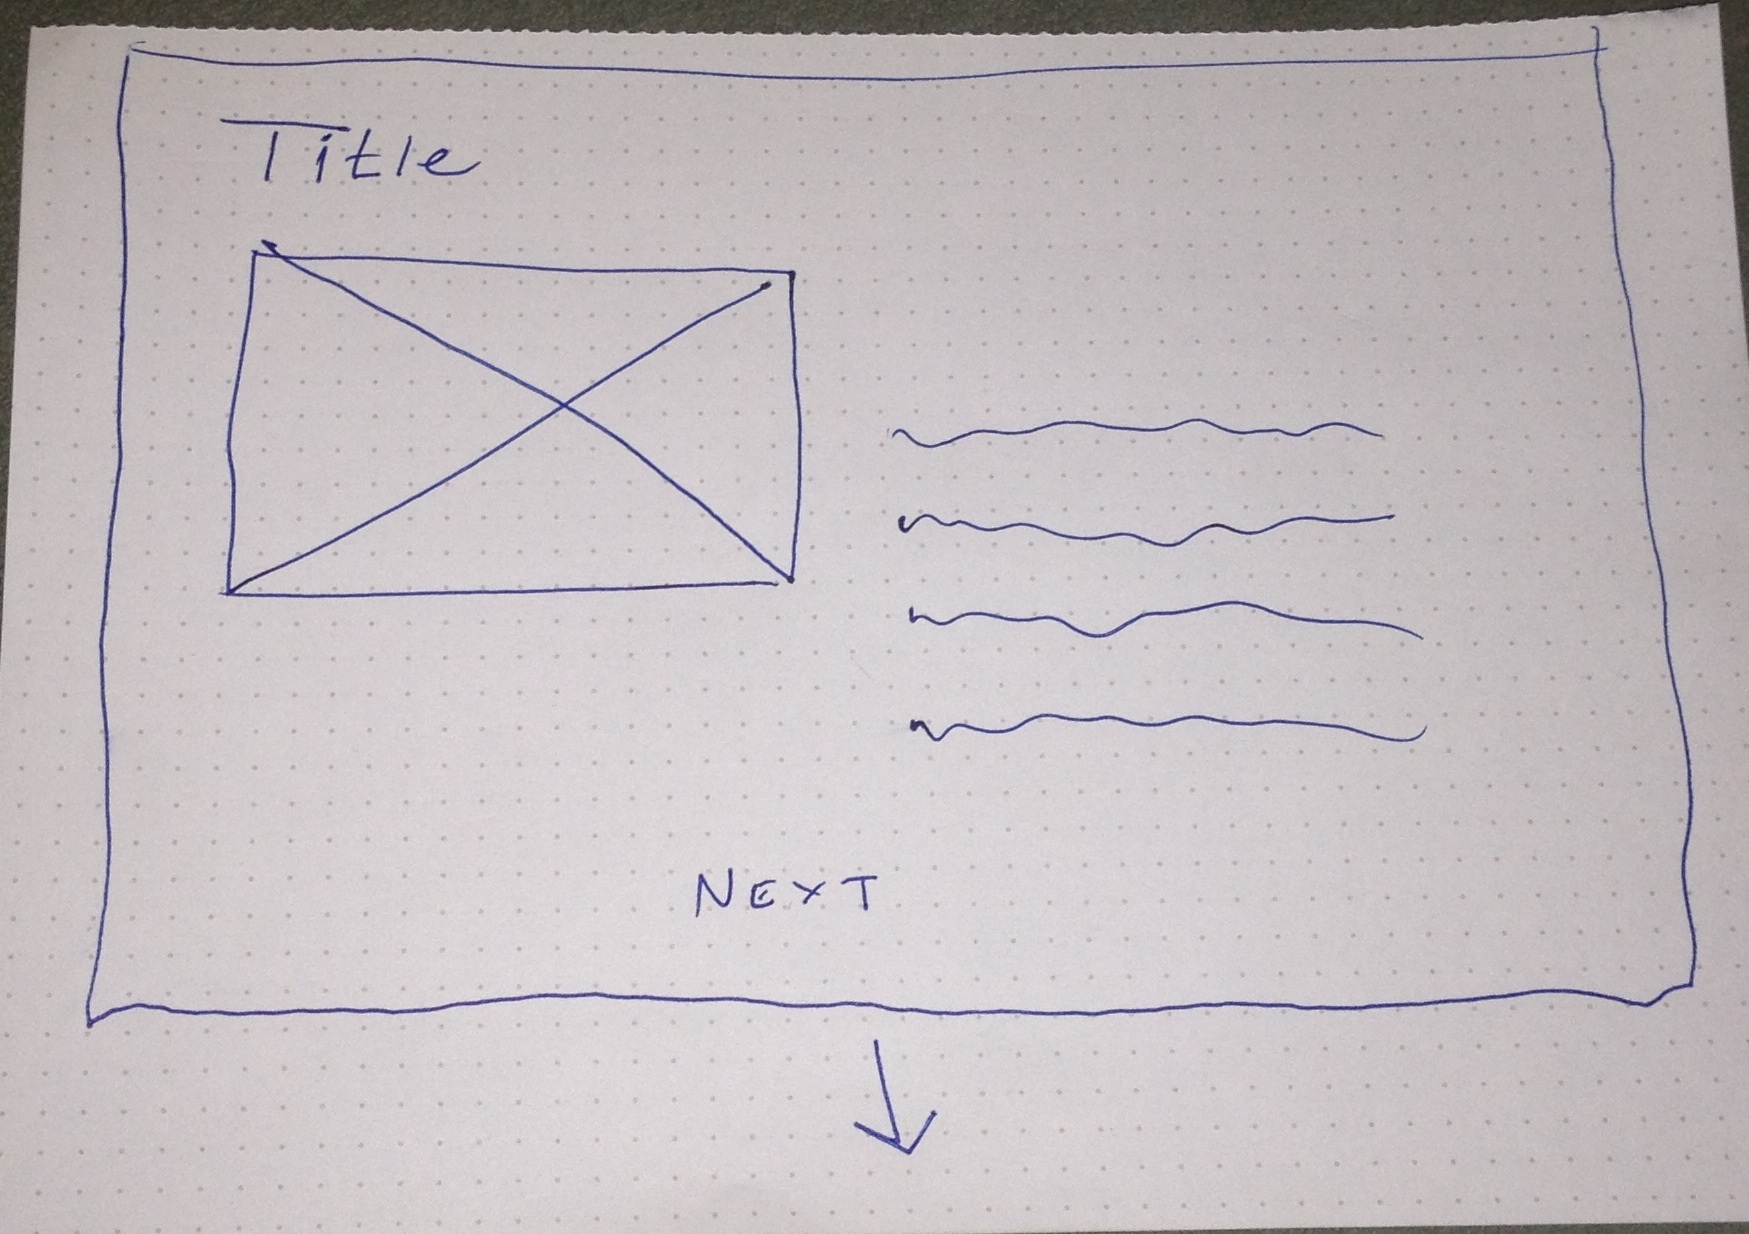 Title
NEXT